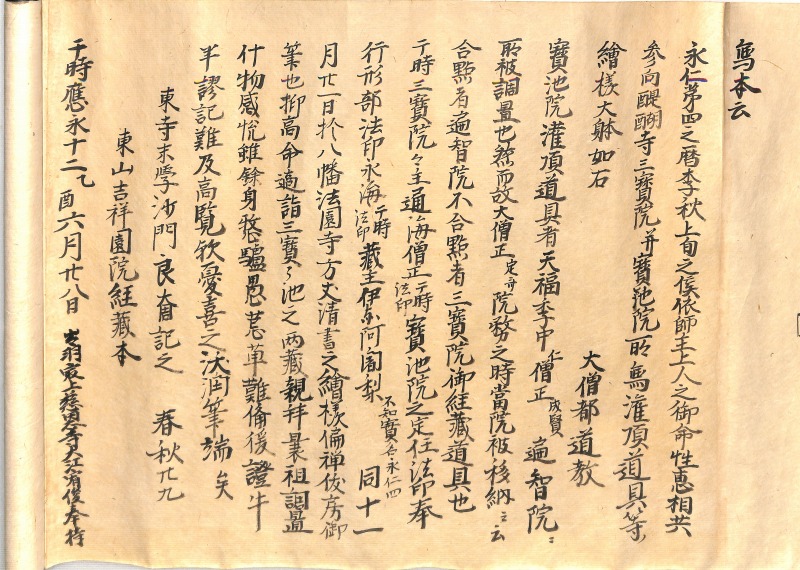 寫本云
永仁第四之暦季秋上旬之候依師主上人之御命性惠相共
参向醍醐寺三寳院并寳池院所寫灌頂道具等
繪様大躰如右
大僧都道教
寳池院灌頂道具者天福季中仁僧正成賢遍智院ミ
所被調置也然而故大僧正定済院務之時當院被移納ミ云
合點者遍智院不合點者三寳院御経藏道具也
于時三寳院々主通海僧正于時法印寳池院之定任法印奉
行形部法印永海于時法印藏主伊与阿闍梨不知實名永仁四同十一
月廿一日於八幡法園寺方丈清書之繪様偏禅俊房御
筆也抑高命適詣三寳ミ池之両藏親拜曩祖調置
什物感悦雖餘身愁驢愚忽草難備後證牛
羊謬記難及高覧欽憂喜之涙潤筆端矣
東寺末學沙門良奝記之 春秋廿九
東山吉祥園院経藏本
于時應永十二乙酉六月廿八日